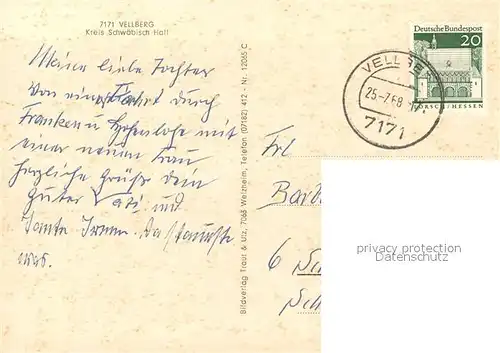 7171 VELLBERG
Kreis Schwäbisch Hall
Meine liebe Tochter
Von einer Fahrt durch
Franken u Hohenlohe mit
einer neuen Frau
herzliche Grüße dein
guter Vati und
Tante Irmen. Da staunste
was.
Bildverlag Traut & Utz, 7063 Welzheim, Telefon (07182) 412 - Nr. 12065 C
Deutsche Bundespost
20
LORSCH/HESSEN
VELLBE
25-7.68
7171
Frl
6
privacy protection
Datenschutz